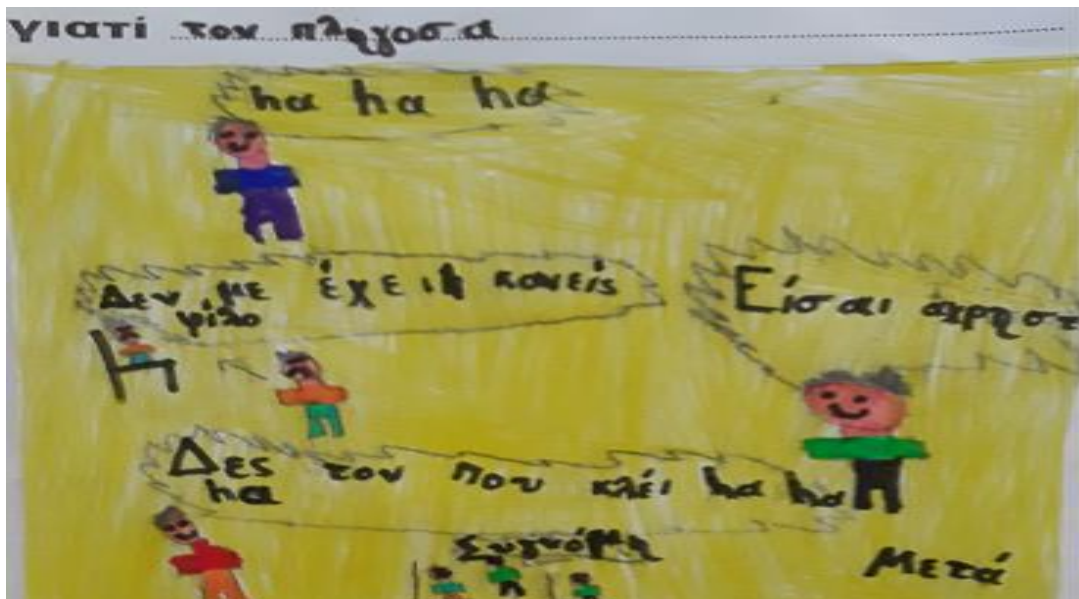 γιατί τον πληγοσα
ha ha ha
Δεν με έχει κανείς
φίλο
Είσαι αχρηστ
Δες τον που κλέι ha ha
ha
Συγνόμη
Μετά